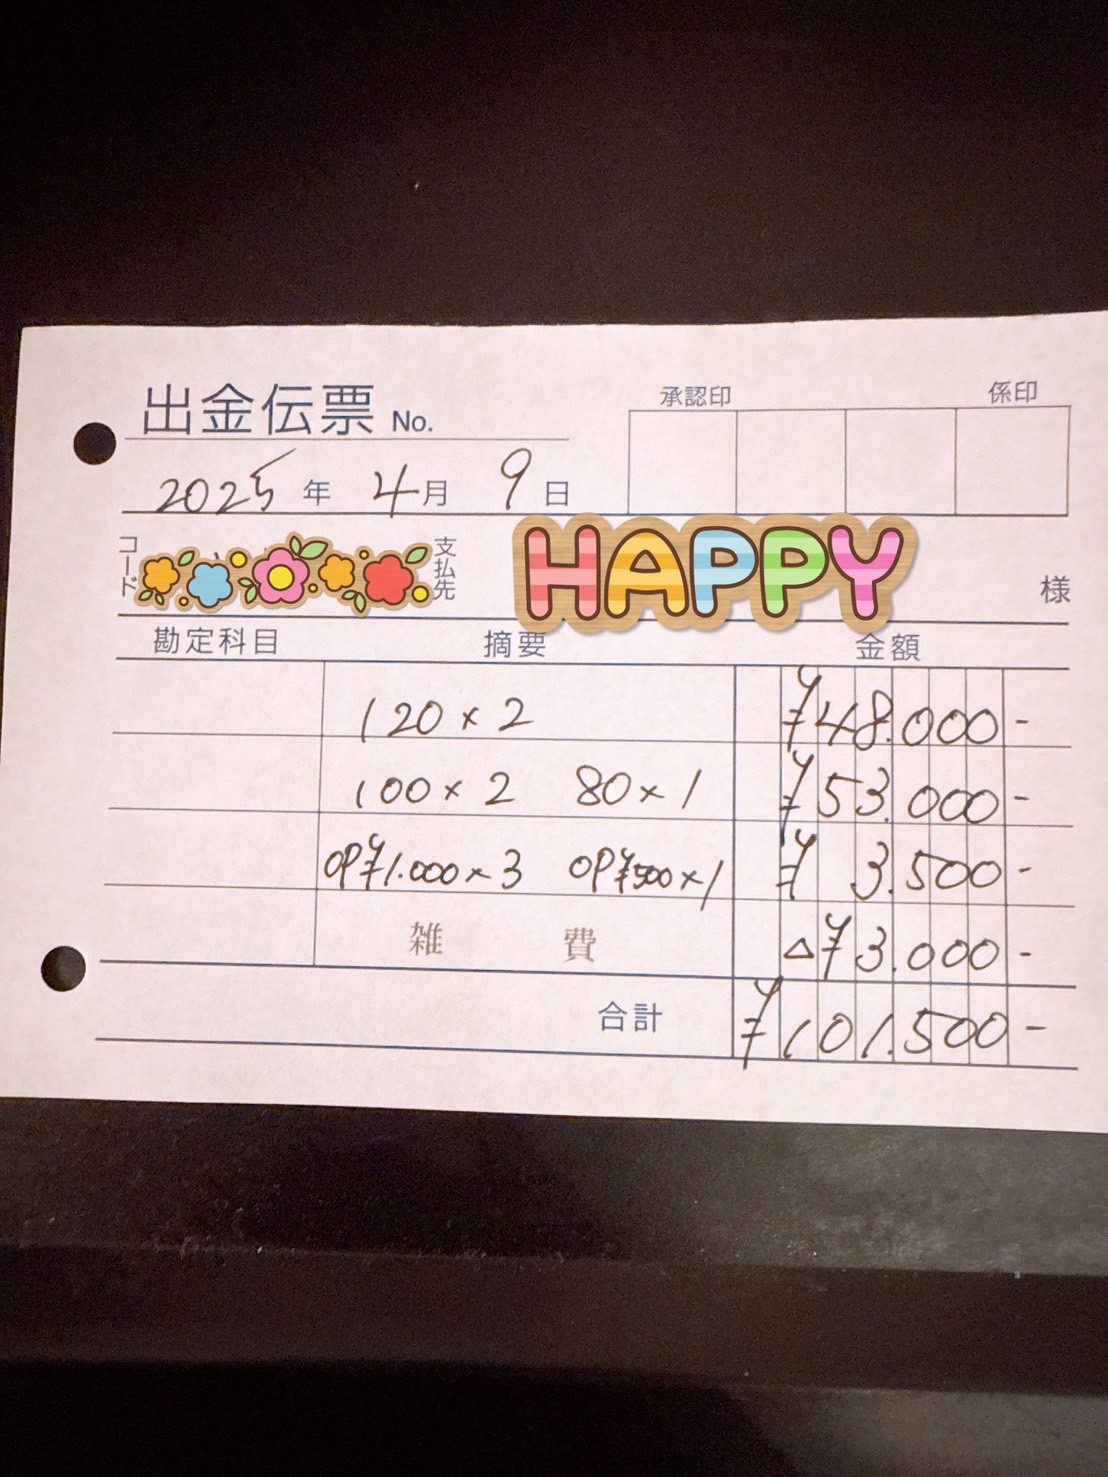 出金伝票 No.
承認印 係印
2025年 4月 9日
コード 支払先 HAPPY 様
勘定科目 摘要 金額
120×2 ¥48.000-
100×2 80×1 ¥53.000-
OP¥1.000×3 OP¥500×1 ¥3.500-
雑費 △¥3.000-
合計 ¥101.500-